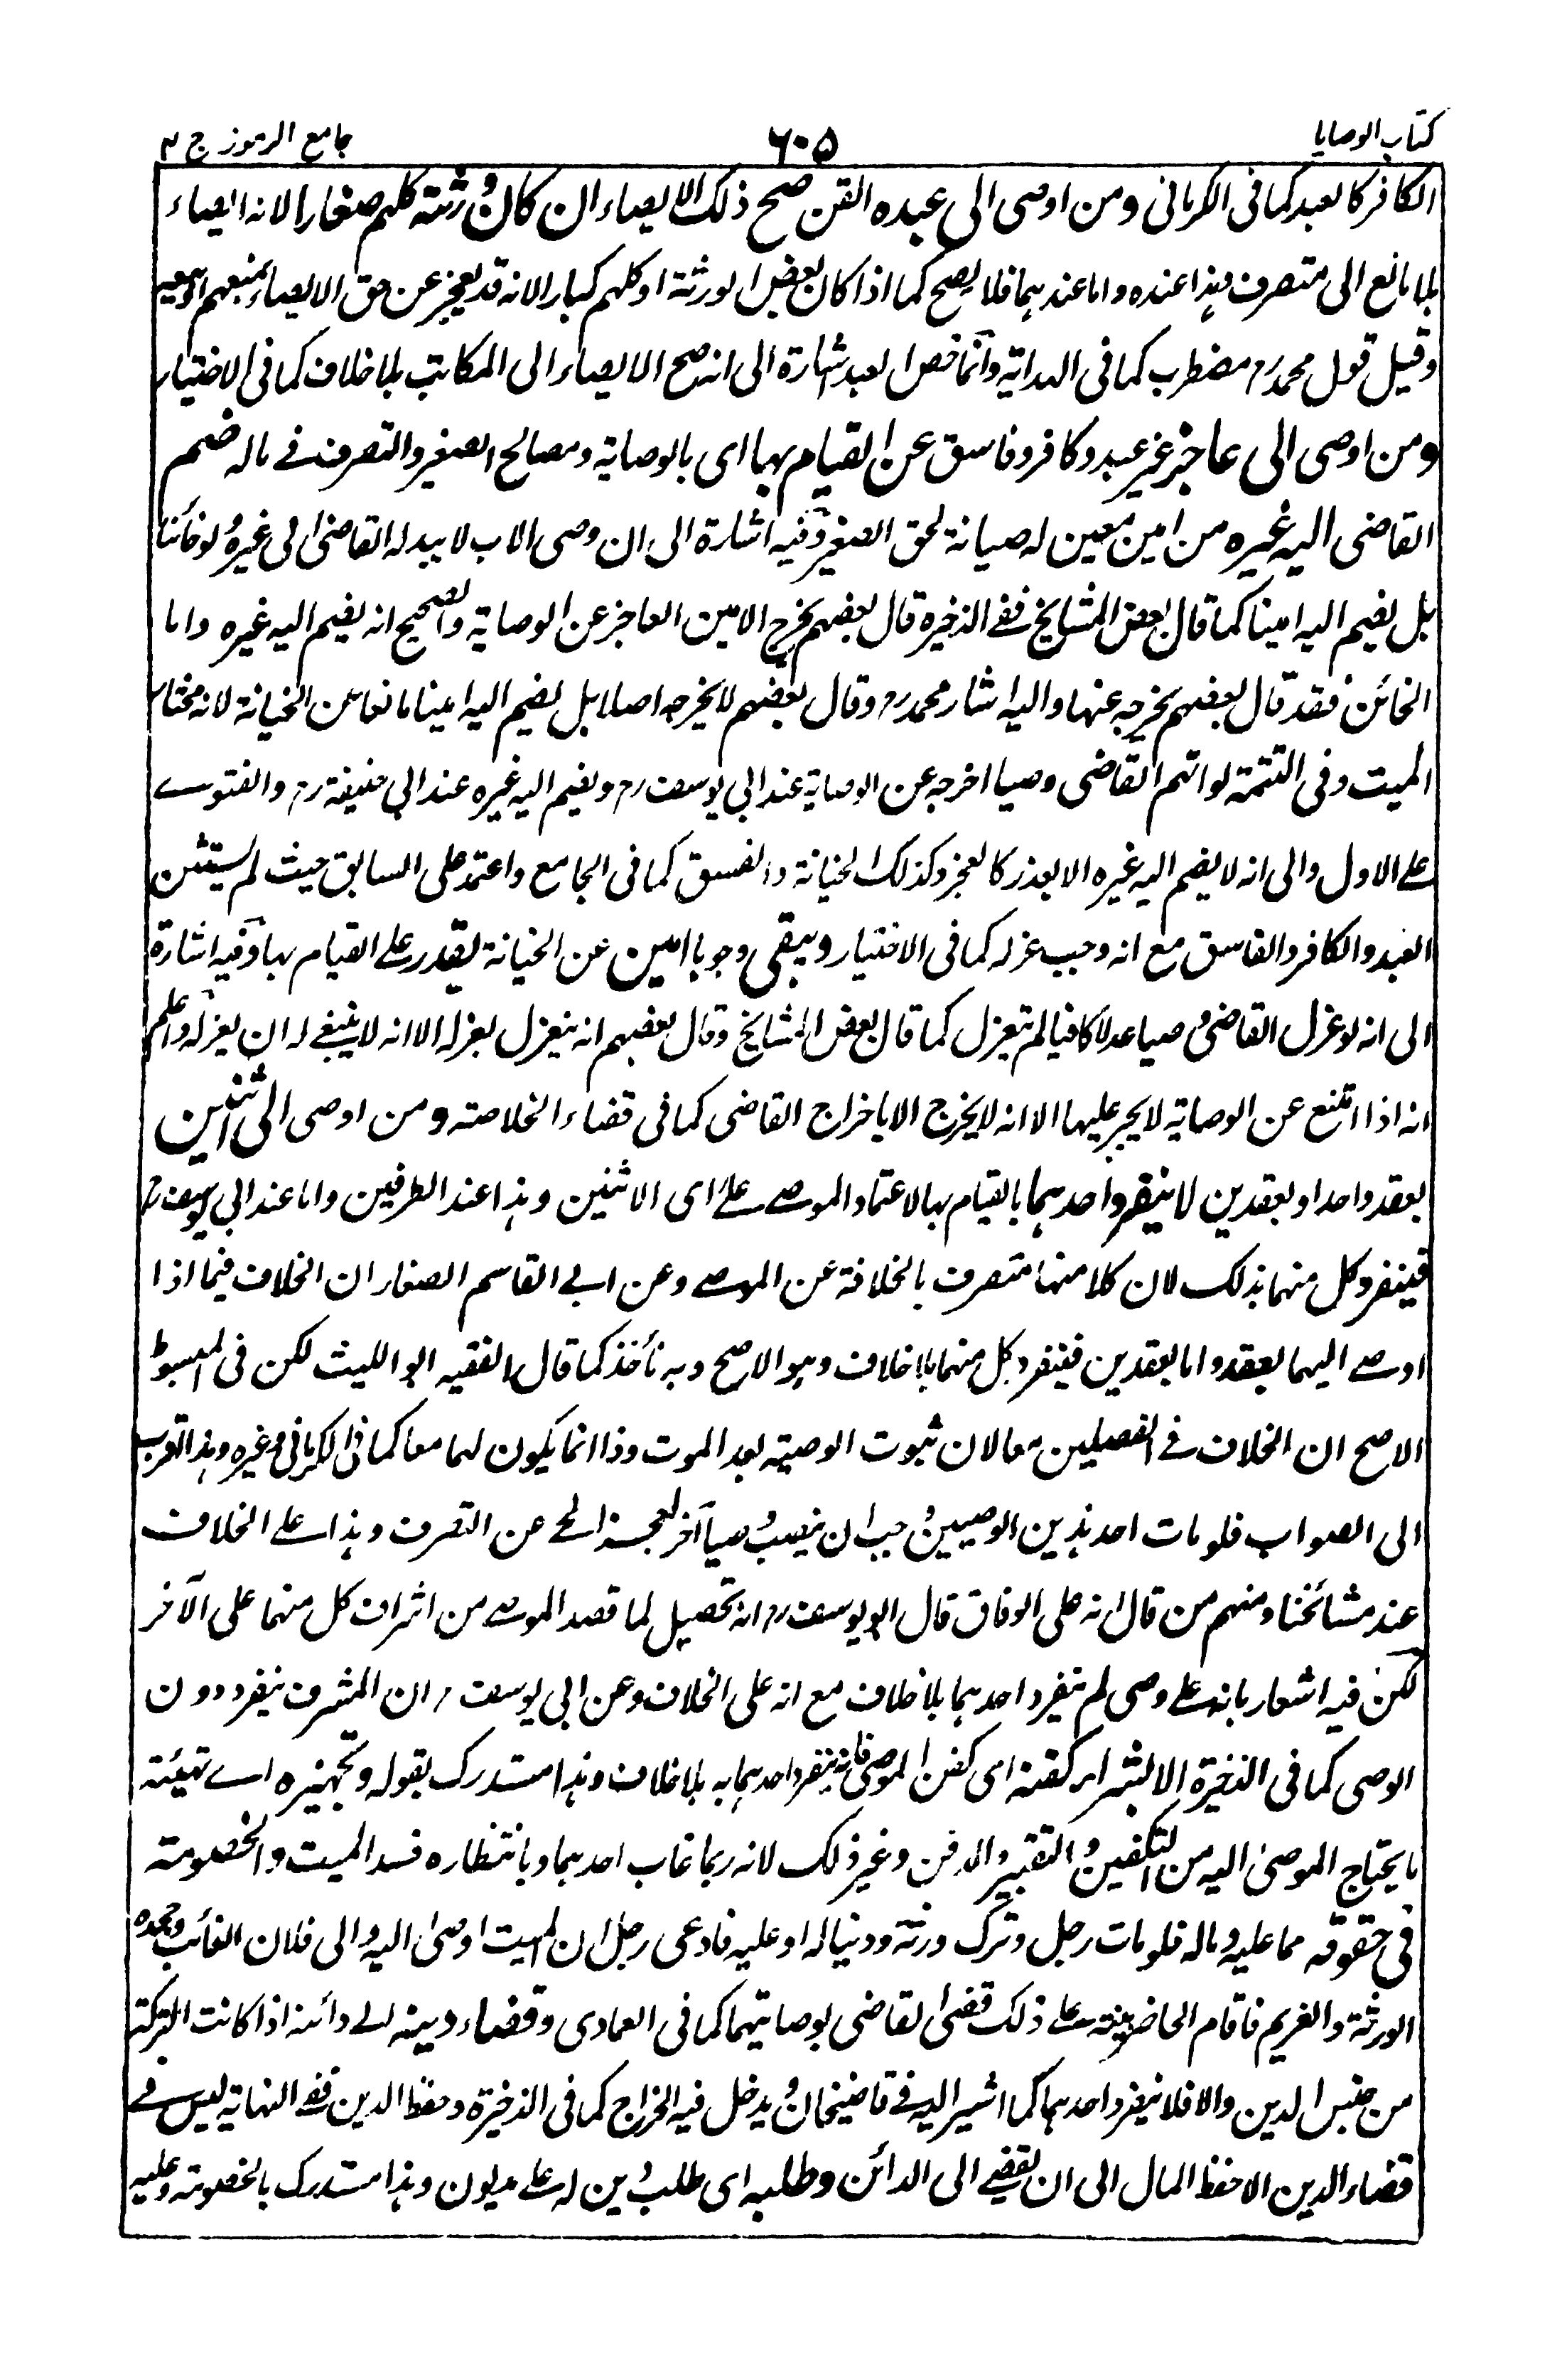 كتاب الوصايا
٦٠٥
جامع الرموز ج ٢
الكافر كالعبد كما فى الكرمانى ومن اوصى الى عبده القن صح ذلك الايصاء ان كان ورثته كلهم صغارا لانه ايصاء
بلا مانع الى متصرف وهذا عنده واما عندهما فلا يصح كما اذا كان بعض الورثة او كلهم كبارا لانه قد يعجز عن حق الايصاء بمنعهم
وقيل قول محمد رح مضطرب كما فى الهداية وانما خص العبد اشارة الى انه صح الايصاء الى المكاتب بلا خلاف كما فى الاختيار
ومن اوصى الى عاجز غير عبد وكافر وفاسق عن القيام بها اى بالوصاية ومصالح الصغير والتصرف فے ماله ضم
القاضى اليه غيره من امين معين له صيانة لحق الصغير وفيه اشارة الى ان وصى الاب لا يبدله القاضى الى غيره لو خائنا
بل يضم اليه امينا كما قال بعض المشايخ ففى الذخيرة قال بعضهم يخرج الامين العاجز عن الوصاية والصحيح انه يضم اليه غيره واما
الخائن فقد قال بعضهم يخرجه عنها واليه اشار محمد رح وقال بعضهم لا يخرجه اصلا بل يضم اليه امينا مانعا عن الخيانة لانه مختار
الميت وفى التتمة لو اتهم القاضى وصيا اخرجه عن الوصاية عند ابى يوسف رح ويضم اليه غيره عند ابى حنيفة رح والفتوے
علے الاول والى انه لا يضم اليه غيره الا بعذر كالعجز وكذلك الخيانة والفسق كما فى الجامع واعتمد على السابق حيث لم يستثن
العبد والكافر والفاسق مع انه وجب عزله كما فى الاختيار ويبقى وجوبا امين عن الخيانة يقدر علے القيام بها وفيه اشارة
الى انه لو عزل القاضى وصيا عدلا كافيا لم ينعزل كما قال بعض المشايخ وقال بعضهم انه ينعزل بعزله الا انه لا ينبغے له ان يعزله واعلم
انه اذا امتنع عن الوصاية لا يجبر عليها الا انه لا يخرج الا باخراج القاضى كما فى قضاء الخلاصة ومن اوصى الى اثنين
بعقد واحد او بعقدين لا ينفرد احدهما بالقيام بها لاعتماد الموصے علے اى الاثنين وهذا عند الطرفين واما عند ابى يوسف رح
فينفرد كل منهما بذلك لان كلا منهما متصرف بالخلافة عن الموصے وعن ابے القاسم الصفار ان الخلاف فيما اذا
اوصے اليهما بعقد واما بعقدين فينفرد كل منهما بلا خلاف وهو الاصح وبه نأخذ كما قال الفقيه ابو الليث لكن فى المبسوط
الاصح ان الخلاف فے الفصلين معا لان ثبوت الوصية بعد الموت وذا انما يكون لهما معا كما فى الكرمانى وغيره وهذا اقرب
الى الصواب فلو مات احد هذين الوصيين وجب ان ينصب وصيا آخر لعجز الحے عن التصرف وهذا علے الخلاف
عند مشائخنا ومنهم من قال انه على الوفاق قال ابو يوسف رح انه تحصيل لما قصد الموصے من اشراف كل منهما على الآخر
لكن فيه اشعار بانه علے وصى لم ينفرد احدهما بلا خلاف مع انه على الخلاف وعن ابى يوسف رح ان المشرف ينفرد دون
الوصى كما فى الذخيرة الا بشراء كفنه اى كفن الموصى فانه ينفرد احدهما به بلا خلاف وهذا مستدرك بقوله وتجهيزه اے تهيئته
ما يحتاج الموصى اليه من التكفين والتقبير والدفن وغير ذلك لانه ربما غاب احدهما وبانتظاره فسد الميت والخصومة
فى حقوقه مما عليه وماله فلو مات رجل وترك ورثة ودينا له او عليه فادعى رجل ان الميت اوصى اليه والى فلان الغائب وجحده
الورثة والغريم فاقام الحاضر بينة علے ذلك قضى القاضى بوصايتهما كما فى العمادى وقضاء دينه الے دائنه اذا كانت التركة
من جنس الدين والا فلا ينفرد احدهما كما اشير اليه فے قاضيخان ويدخل فيه الخراج كما فى الذخيرة وحفظ الدين ففے النهاية ليس فے
قضاء الدين الا حفظ المال الى ان يقضے الى الدائن وطلبه اى طلب دين له علے مديون وهذا مستدرك بالخصومة وعليه